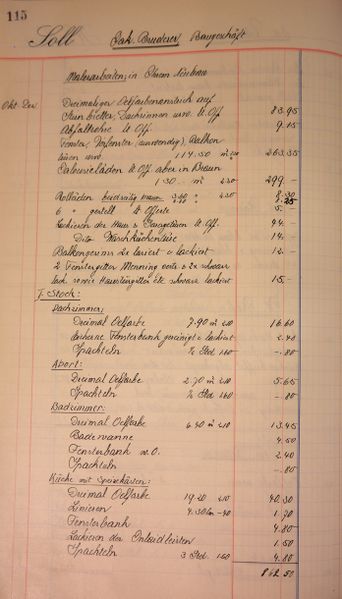 115
Soll Jak. Bruderer, Baugeschäft
Malerarbeiten, in Ihrem Neubau
Okt. Dez. Dreimaliger Oelfarbenanstrich auf
Stirnbretter, Dachrinnen usw. lt. Off. 83.95
Abfallrohre lt. Off. 9.15
Fenster, Vorfenster (auswendig), Balkon
türen usw. 114.50 m² 263.35
Jalousieläden lt. Off. aber in Braun
130.- m² 2.30 299.-
Rolläden beidseitig 2.30
6 " gestell lt. Offerte 5.-
Lackieren der Haus & Garagetüren lt. Off. 44.-
Dito Waschküchentüre 14.-
Balkongesims 2x lasiert & lackiert 12.-
2 Fenstergitter Menning & 2x schwarz
lack. sowie Haustürgitter schwarz lackiert 15.-
I. Stock:
Dachzimmer:
Dreimal Oelfarbe 7.90 m² 2.10 16.60
Fensterbank gereinigt & lackiert 2.40
Spachteln ½ Std. 1.60 -.80
Abort:
Dreimal Oelfarbe 2.70 m² 2.10 5.65
Spachteln ½ Std. 1.60 -.80
Badzimmer:
Dreimal Oelfarbe 6.40 m² 2.10 13.45
Badewanne 4.50
Fensterbank w.O. 2.40
Spachteln -.80
Küche mit Speisekasten:
Dreimal Oelfarbe 19.20 2.10 40.30
Linieren 4.30 lm -.40 1.70
Fensterbank 4.80
Lackieren der Inlaidleisten 1.50
Spachteln 3 Std. 1.60 4.80
842.50